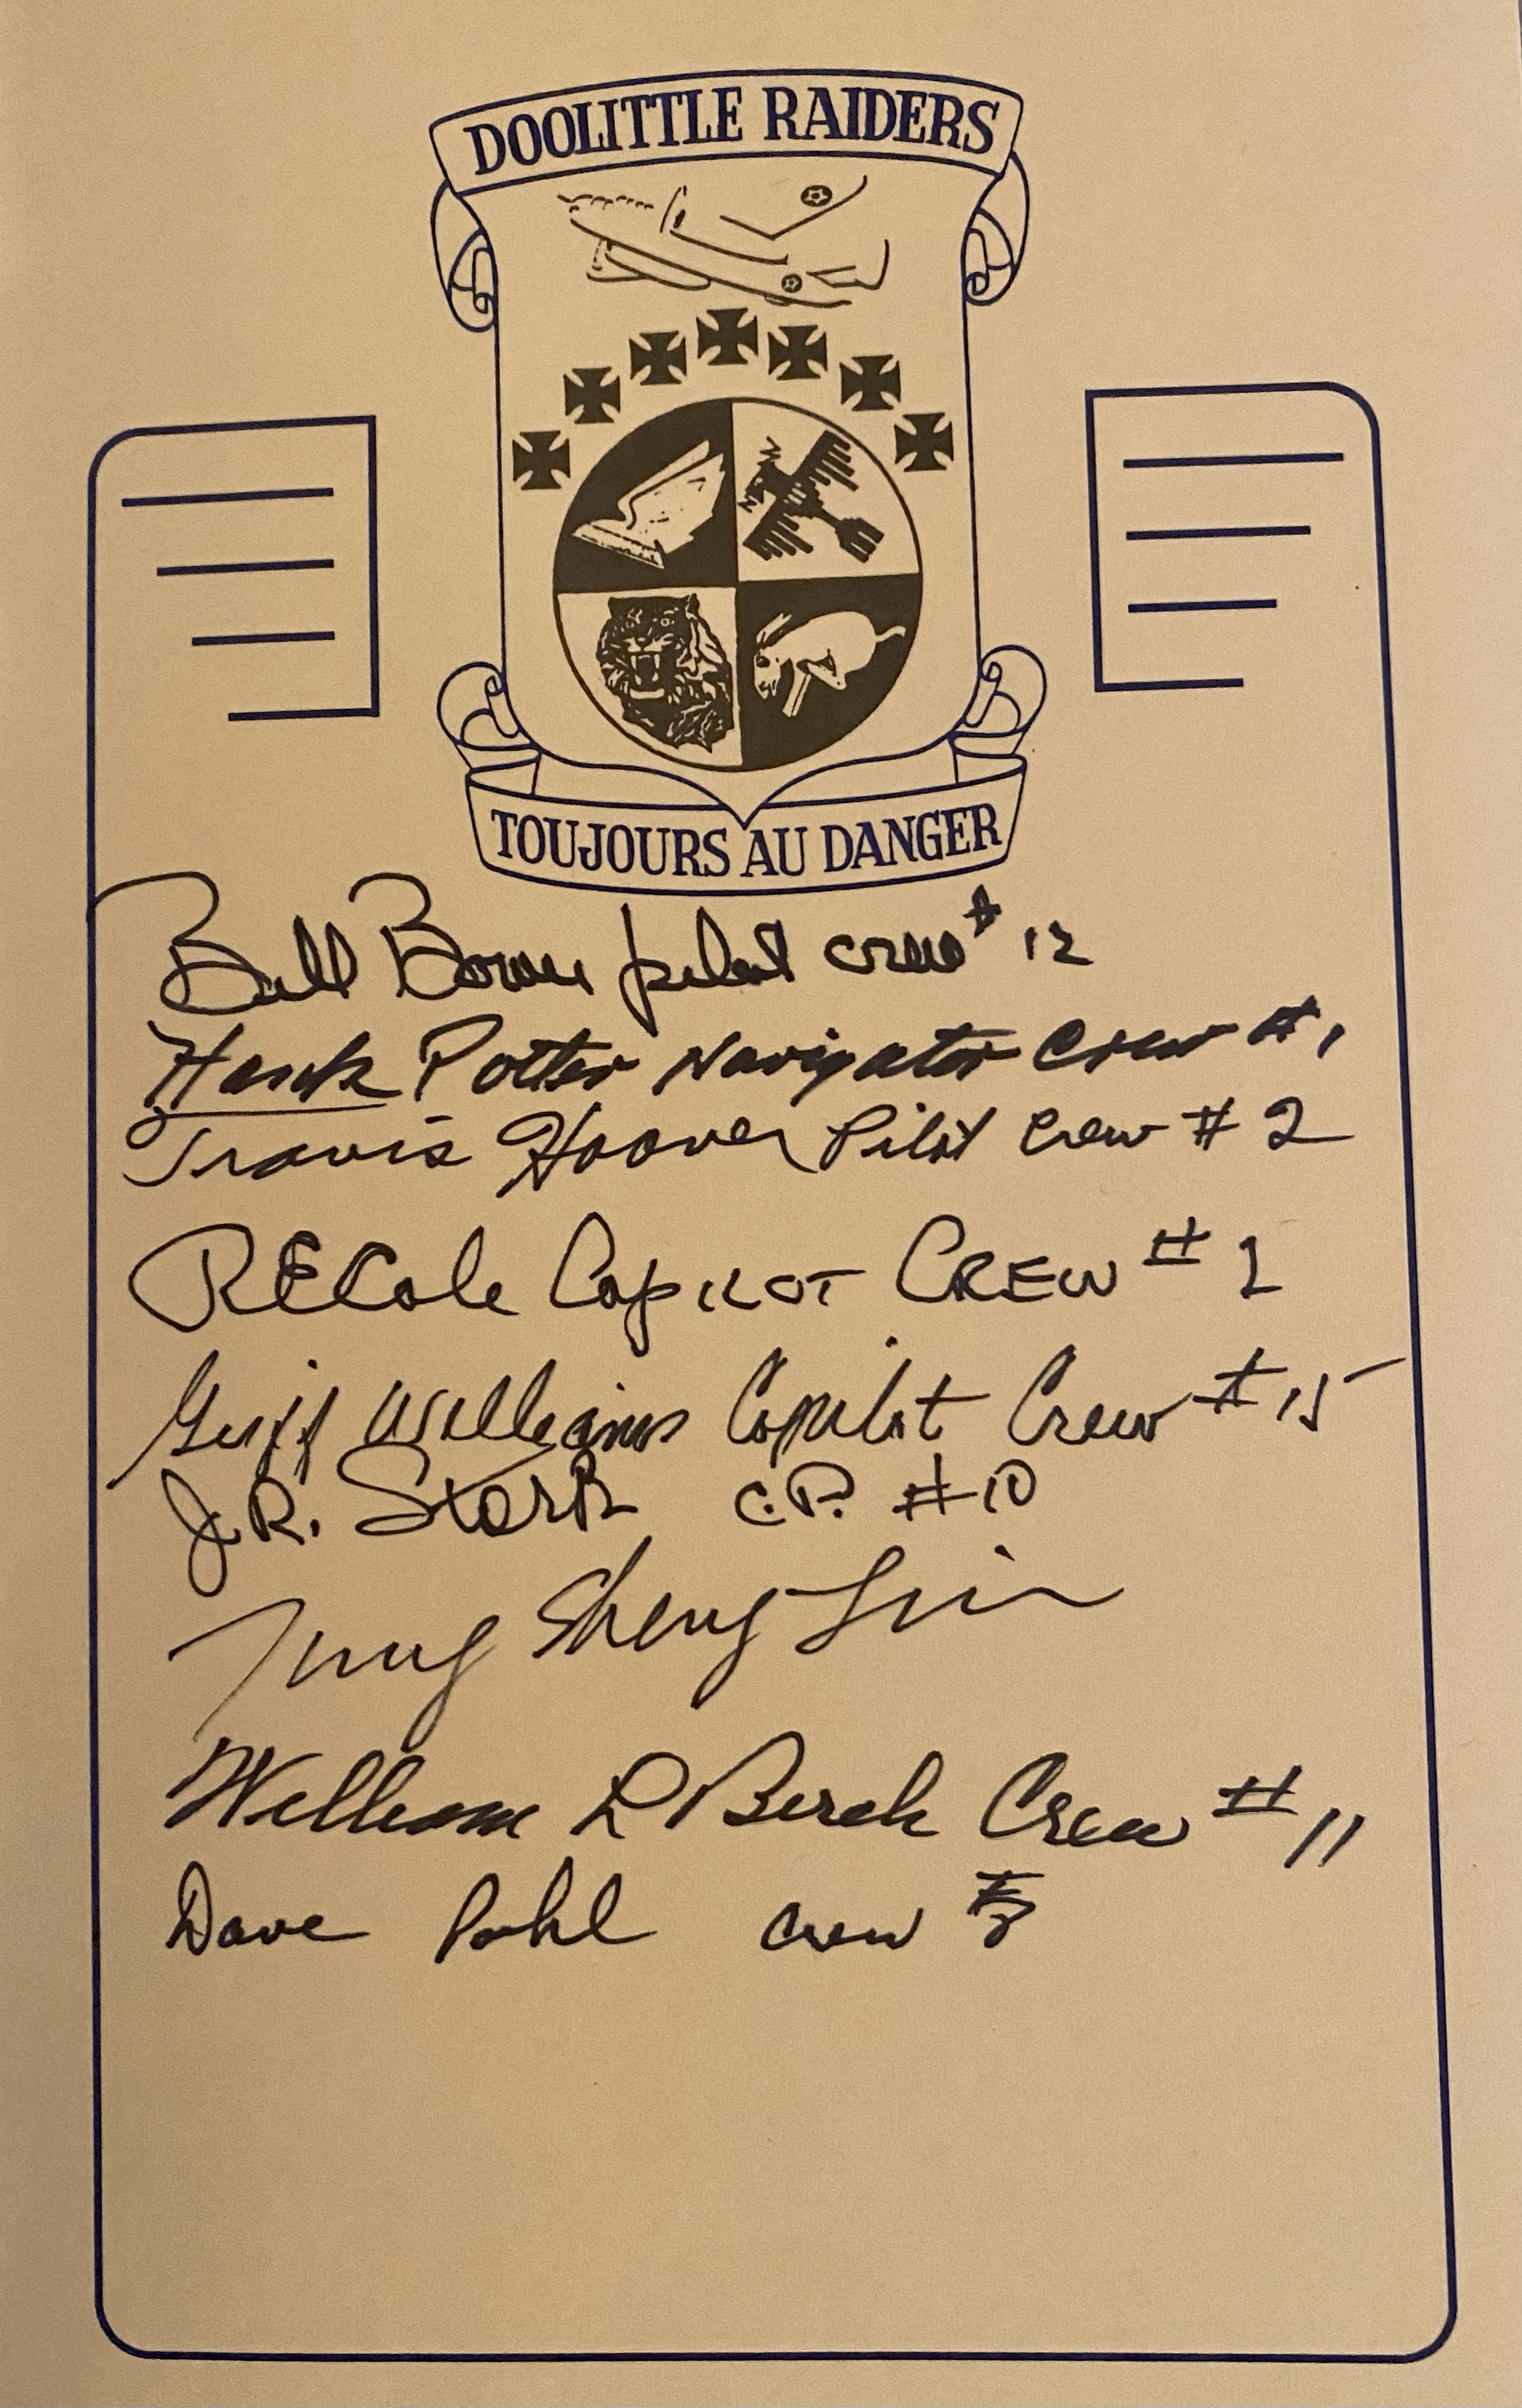 DOOLITTLE RAIDERS
TOUJOURS AU DANGER
Bill Bower pilot crew # 12
Hank Potter Navigator Crew # 1
Travis Hoover Pilot Crew # 2
RECole Copilot CREW # 1
Griff Williams Copilot Crew # 15
J.R. Stork C.P. #10
Tung Sheng Liu
William L Birch Crew # 11
Dave Pohl crew # 8